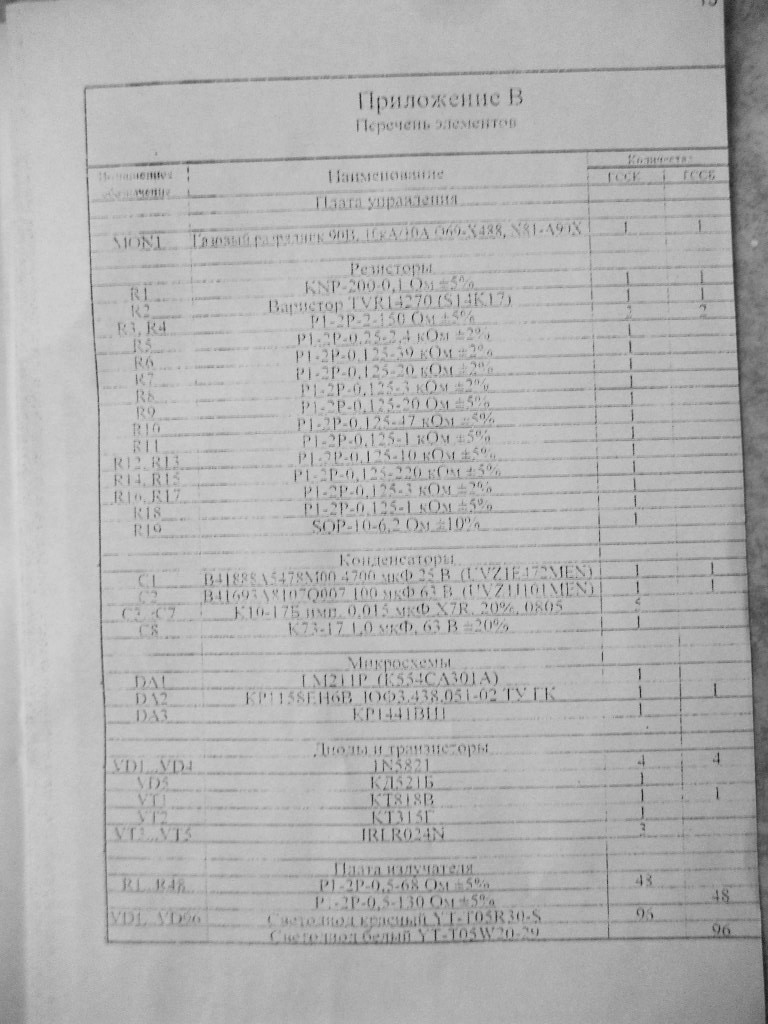 Приложение В
Перечень элементов
Наименование
ГССК ГССБ
Плата управления
Газовый разрядник 90В, 10кА/10А Q69-X488, N81-A90X 1 1
Резисторы
R1 KNP-200-0,1 Ом ±5% 1 1
R2 Варистор TVR14270 (S14K17) 1 1
R3, R4 Р1-2Р-2-150 Ом ±5% 2 2
R5 Р1-2Р-0,25-2,4 кОм ±2% 1
R6 Р1-2Р-0,125-39 кОм ±2% 1
R7 Р1-2Р-0,125-20 кОм ±2% 1
R8 Р1-2Р-0,125-3 кОм ±2% 1
R9 Р1-2Р-0,125-20 Ом ±5% 1
R10 Р1-2Р-0,125-47 кОм ±5% 1
R11 Р1-2Р-0,125-1 кОм ±5% 1
R12, R13 Р1-2Р-0,125-10 кОм ±5% 1
R14, R15 Р1-2Р-0,125-220 кОм ±5% 1
R16, R17 Р1-2Р-0,125-3 кОм ±2% 1
R18 Р1-2Р-0,125-1 кОм ±5% 1
R19 SQP-10-6,2 Ом ±10% 1
Конденсаторы
C1 B41888A5478M00 4700 мкФ 25 В (UVZ1E472MEN) 1 1
C2 B41693A8107Q007 100 мкФ 63 В (UVZ1J101MEN) 1 1
C3...C7 К10-17Б имп. 0,015 мкФ X7R, 20%, 0805 5
C8 К73-17 1,0 мкФ, 63 В ±20% 1
Микросхемы
DA1 LM211P (К554СА301А) 1
DA2 КР1158ЕН6В ЮФ3.438.051-02 ТУ ГК 1 1
DA3 КР1441ВИ1 1
Диоды и транзисторы
VD1...VD4 1N5821 4 4
VD5 КД521Б 1
VT1 КТ818В 1 1
VT2 КТ315Г 1
VT3...VT5 IRLR024N 3
Плата излучателя
R1...R48 Р1-2Р-0,5-68 Ом ±5% 48
Р1-2Р-0,5-130 Ом ±5% 48
VD1...VD96 Светодиод красный YT-T05R30-S 96
Светодиод белый YT-T05W20-29 96